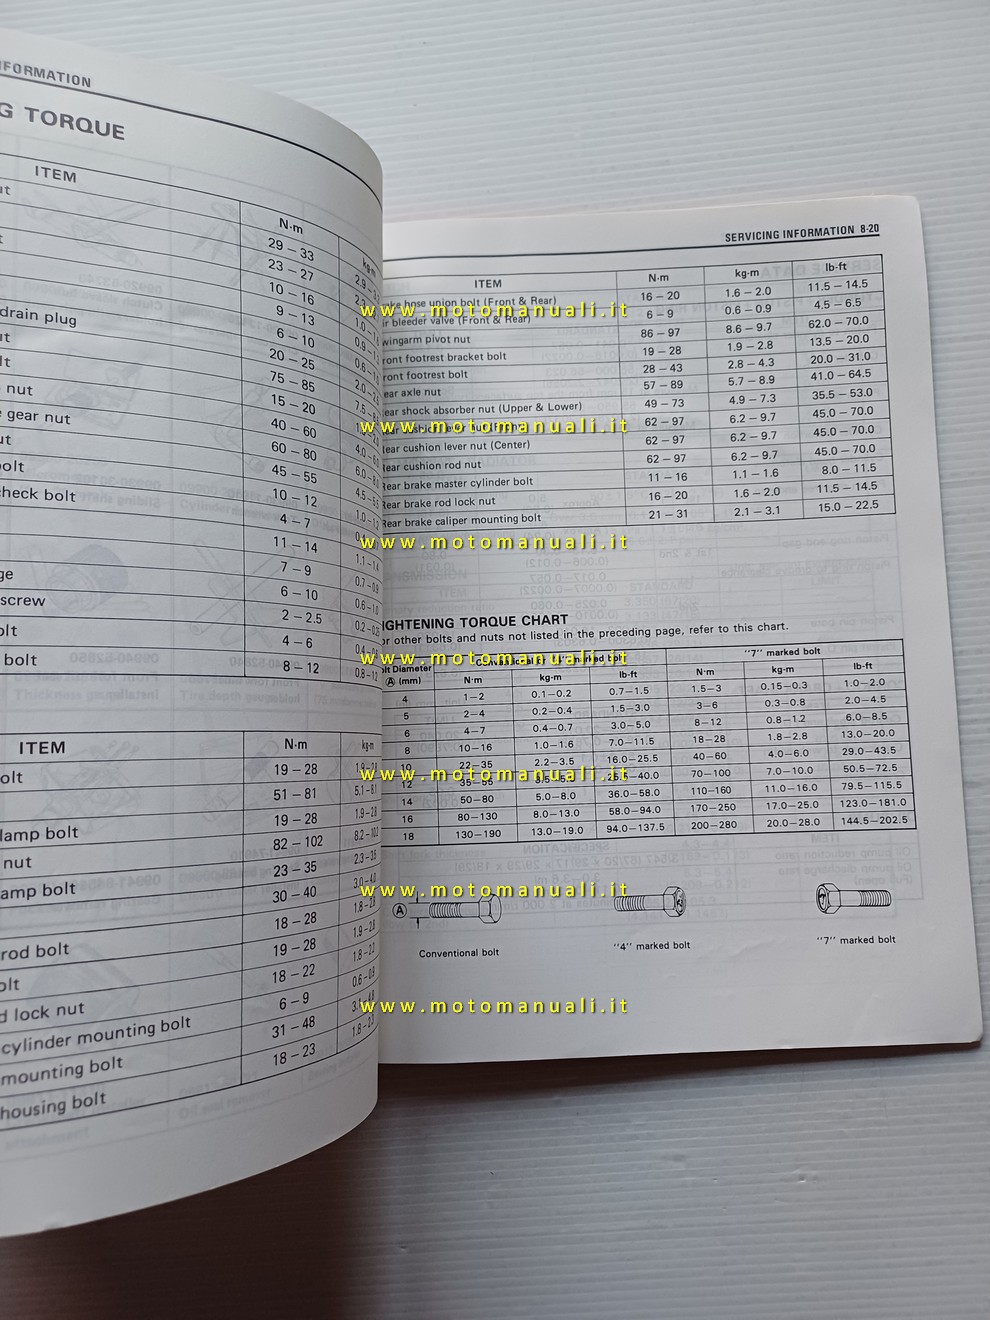 INFORMATION
G TORQUE
ITEM N·m kg-m
ut 29 – 33
23 – 27
t 10 – 16
9 – 13
drain plug 6 – 10
ut 20 – 25
lt 75 – 85
nut 15 – 20
gear nut 40 – 60
ut 60 – 80
bolt 45 – 55
check bolt 10 – 12
4 – 7
11 – 14 1.1 – 1.4
ge 7 – 9 0.7 – 0.9
screw 6 – 10 0.6 – 1.0
2 – 2.5 0.2 – 0.25
olt 4 – 6
bolt 8 – 12 0.8 – 1.2
ITEM N·m kg-m
olt 19 – 28 1.9 – 2.8
51 – 81 5.1 – 8.1
lamp bolt 19 – 28 1.9 – 2.8
nut 82 – 102 8.2 – 10.2
amp bolt 23 – 35 2.3 – 3.5
30 – 40 3.0 – 4.0
rod bolt 18 – 28 1.8 – 2.8
olt 19 – 28 1.9 – 2.8
d lock nut 18 – 22 1.8 – 2.2
cylinder mounting bolt 6 – 9 0.6 – 0.9
mounting bolt 31 – 48
housing bolt 18 – 23
SERVICING INFORMATION 8-20
ITEM N·m kg-m lb·ft
ake hose union bolt (Front & Rear) 16 – 20 1.6 – 2.0 11.5 – 14.5
ir bleeder valve (Front & Rear) 6 – 9 0.6 – 0.9 4.5 – 6.5
wingarm pivot nut 86 – 97 8.6 – 9.7 62.0 – 70.0
ront footrest bracket bolt 19 – 28 1.9 – 2.8 13.5 – 20.0
ront footrest bolt 28 – 43 2.8 – 4.3 20.0 – 31.0
ear axle nut 57 – 89 5.7 – 8.9 41.0 – 64.5
ear shock absorber nut (Upper & Lower) 49 – 73 4.9 – 7.3 35.5 – 53.0
62 – 97 6.2 – 9.7 45.0 – 70.0
Rear cushion lever nut (Center) 62 – 97 6.2 – 9.7 45.0 – 70.0
Rear cushion rod nut 62 – 97 6.2 – 9.7 45.0 – 70.0
Rear brake master cylinder bolt 11 – 16 1.1 – 1.6 8.0 – 11.5
Rear brake rod lock nut 16 – 20 1.6 – 2.0 11.5 – 14.5
Rear brake caliper mounting bolt 21 – 31 2.1 – 3.1 15.0 – 22.5
IGHTENING TORQUE CHART
or other bolts and nuts not listed in the preceding page, refer to this chart.
olt Diameter Conventional or "4" marked bolt "7" marked bolt
Ⓐ (mm) N·m kg-m lb·ft N·m kg-m lb·ft
4 1 – 2 0.1 – 0.2 0.7 – 1.5 1.5 – 3 0.15 – 0.3 1.0 – 2.0
5 2 – 4 0.2 – 0.4 1.5 – 3.0 3 – 6 0.3 – 0.8 2.0 – 4.5
6 4 – 7 0.4 – 0.7 3.0 – 5.0 8 – 12 0.8 – 1.2 6.0 – 8.5
8 10 – 16 1.0 – 1.6 7.0 – 11.5 18 – 28 1.8 – 2.8 13.0 – 20.0
10 22 – 35 2.2 – 3.5 16.0 – 25.5 40 – 60 4.0 – 6.0 29.0 – 43.5
12 35 – 55 70 – 100 7.0 – 10.0 50.5 – 72.5
14 50 – 80 5.0 – 8.0 36.0 – 58.0 110 – 160 11.0 – 16.0 79.5 – 115.5
16 80 – 130 8.0 – 13.0 58.0 – 94.0 170 – 250 17.0 – 25.0 123.0 – 181.0
18 130 – 190 13.0 – 19.0 94.0 – 137.5 200 – 280 20.0 – 28.0 144.5 – 202.5
Ⓐ
Conventional bolt "4" marked bolt "7" marked bolt
www.motomanuali.it
www.motomanuali.it
www.motomanuali.it
www.motomanuali.it
www.motomanuali.it
www.motomanuali.it
www.motomanuali.it